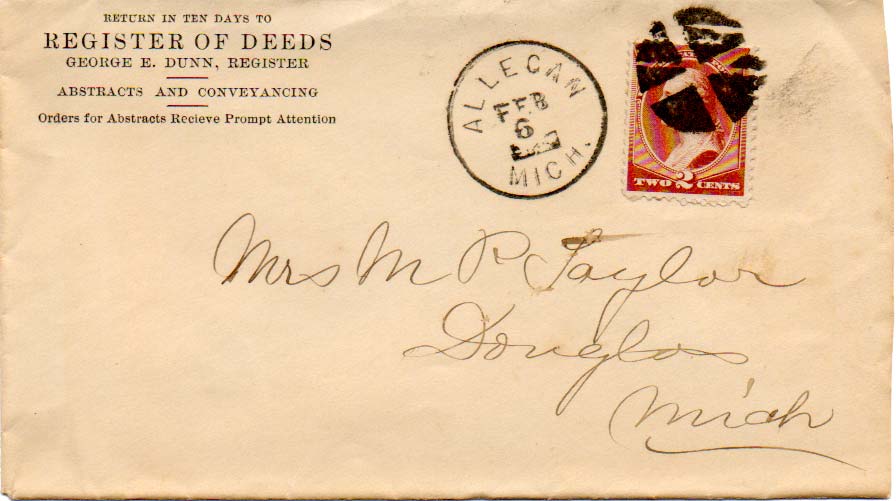 RETURN IN TEN DAYS TO
REGISTER OF DEEDS
GEORGE E. DUNN, REGISTER
ABSTRACTS AND CONVEYANCING
Orders for Abstracts Recieve Prompt Attention
ALLEGAN
FEB
6
MICH.
TWO 2 CENTS
Mrs M P Taylor
Douglas
Mich